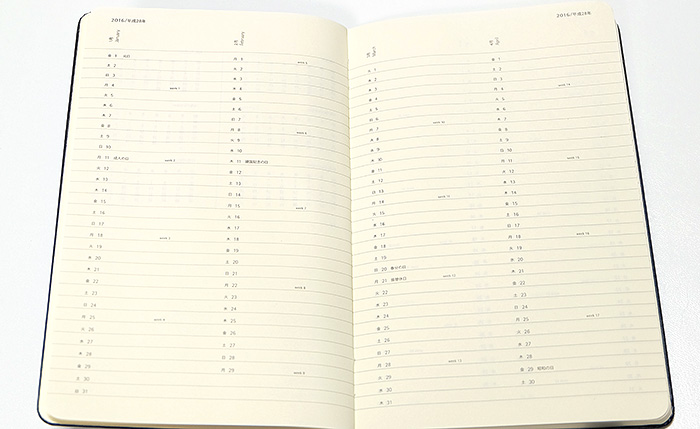 2016/平成28年
1月 January
金 1 元日
土 2
日 3
月 4 week 1
火 5
水 6
木 7
金 8
土 9
日 10
月 11 成人の日 week 2
火 12
水 13
木 14
金 15
土 16
日 17
月 18 week 3
火 19
水 20
木 21
金 22
土 23
日 24
月 25 week 4
火 26
水 27
木 28
金 29
土 30
日 31
2月 February
月 1 week 5
火 2
水 3
木 4
金 5
土 6
日 7
月 8 week 6
火 9
水 10
木 11 建国記念の日
金 12
土 13
日 14
月 15 week 7
火 16
水 17
木 18
金 19
土 20
日 21
月 22 week 8
火 23
水 24
木 25
金 26
土 27
日 28
月 29 week 9
2016/平成28年
3月 March
火 1
水 2
木 3
金 4
土 5
日 6
月 7 week 10
火 8
水 9
木 10
金 11
土 12
日 13
月 14 week 11
火 15
水 16
木 17
金 18
土 19
日 20 春分の日
月 21 振替休日 week 12
火 22
水 23
木 24
金 25
土 26
日 27
月 28 week 13
火 29
水 30
木 31
4月 April
金 1
土 2
日 3
月 4 week 14
火 5
水 6
木 7
金 8
土 9
日 10
月 11 week 15
火 12
水 13
木 14
金 15
土 16
日 17
月 18 week 16
火 19
水 20
木 21
金 22
土 23
日 24
月 25 week 17
火 26
水 27
木 28
金 29 昭和の日
土 30